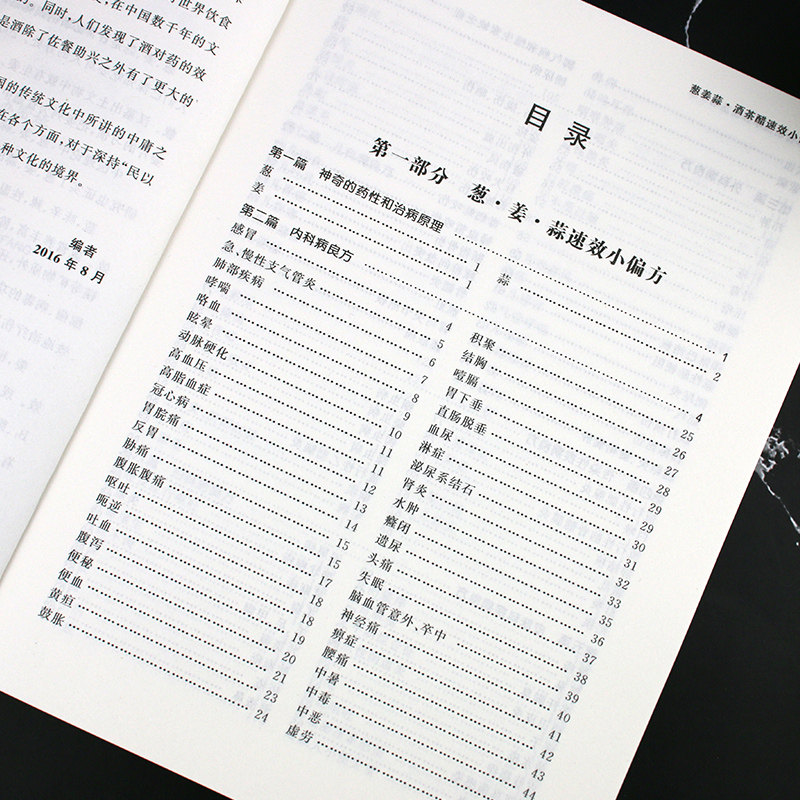 世界饮食
，在中国数千年的文
的。同时，人们发现了酒对药的效
是酒除了佐餐助兴之外有了更大的
国的传统文化中所讲的中庸之
在各个方面，对于深持“民以
种文化的境界。
编者
2016 年 8 月
葱姜蒜·酒茶醋速效小
目录
第一部分 葱·姜·蒜速效小偏方
第一篇 神奇的药性和治病原理 1
葱 1
姜 1
蒜 2
第二篇 内科病良方 4
感冒 4
急、慢性支气管炎 5
肺部疾病 6
哮喘 7
咯血 8
眩晕 9
动脉硬化 10
高血压 11
高脂血症 11
冠心病 12
胃脘痛 13
反胃 14
胁痛 15
腹胀腹痛 15
呕吐 17
呃逆 18
吐血 18
腹泻 19
便秘 20
便血 21
黄疸 23
鼓胀 24
积聚 25
结胸 26
噎膈 27
胃下垂 28
直肠脱垂 29
血尿 29
淋症 30
泌尿系结石 31
肾炎 32
水肿 33
癃闭 35
遗尿 36
头痛 37
失眠 38
脑血管意外、卒中 39
神经痛 40
痹症 41
腰痛 42
中暑 43
中毒 44
中恶
虚劳